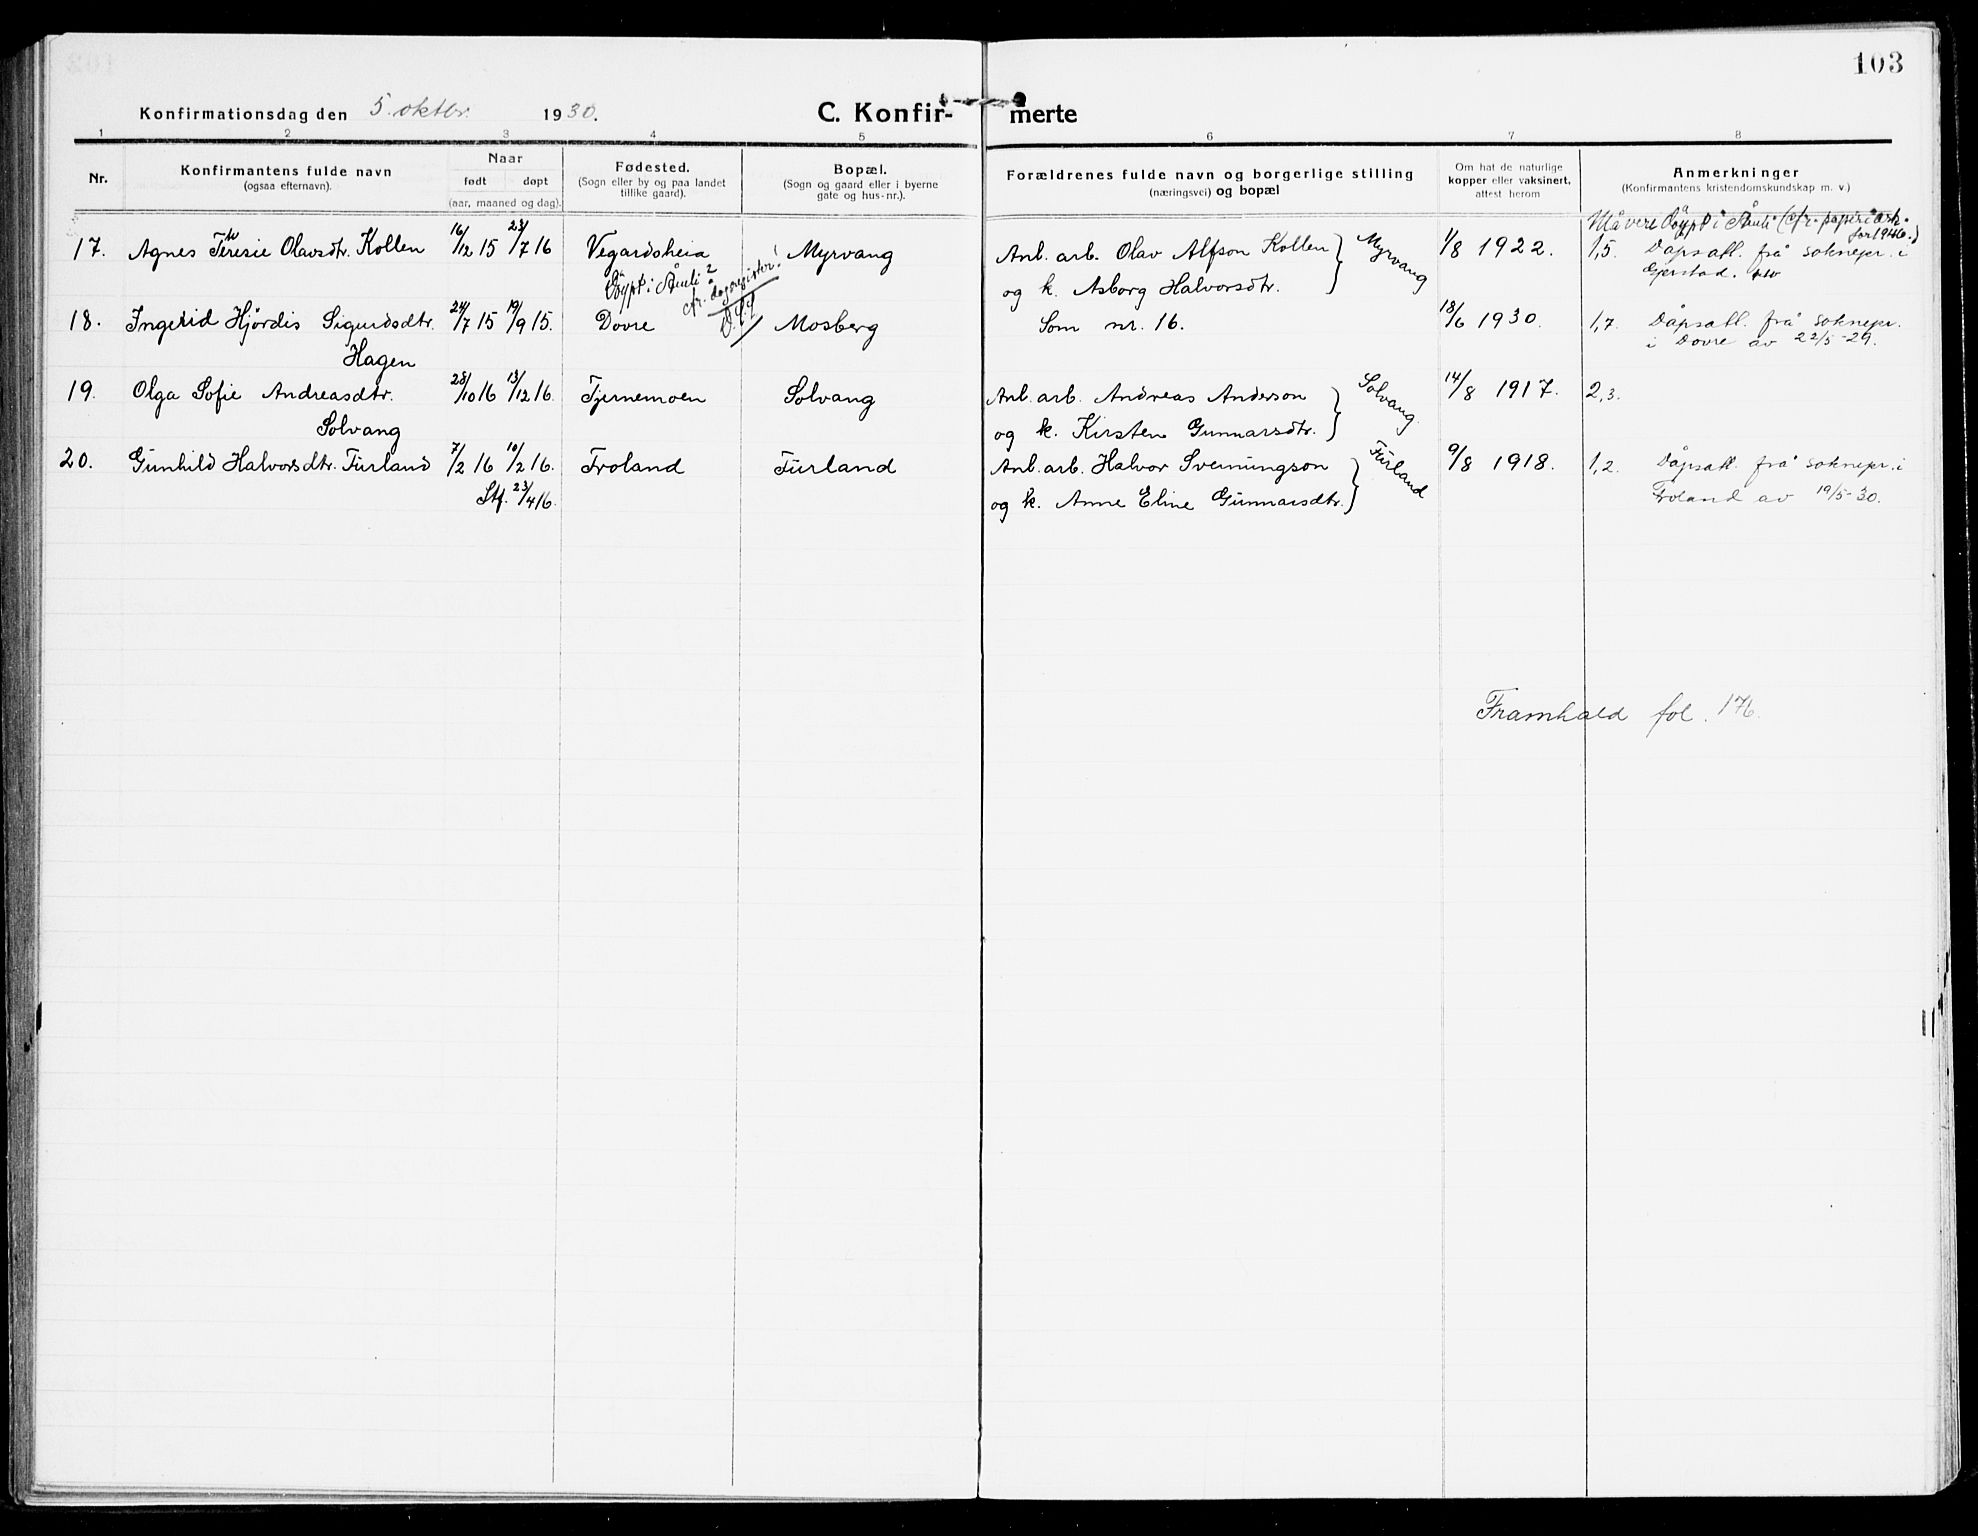 103
Konfirmationsdag den 5. oktbr. 1930. C. Konfir- merte
1 2 3 4 5 6 7 8
Nr. Konfirmantens fulde navn (ogsaa efternavn). Naar født døpt (aar, maaned og dag). Fødested. (Sogn eller by og paa landet tillike gaard). Bopæl. (Sogn og gaard eller i byerne gate og hus-nr.). Forældrenes fulde navn og borgerlige stilling (næringsvei) og bopæl Om hat de naturlige kopper eller vaksinert, attest herom Anmerkninger (Konfirmantens kristendomskundskap m. v.)
Må vere døypt i Åmli (cfr. papir i ark.
for 1946.)
17. Agnes Teresie Olavsdtr. Kollen 16/12 15 23/7 16 Vegardsheia Myrvang Arb. arb. Olav Alfson Kollen Myrvang 1/8 1922. 1,5. Dåpsatt. frå soknepr. i
Døypt i Åmli cfr. dagregister! og k. Asborg Halvorsdtr. Gjerstad.
18. Ingerid Hjördis Sigurdsdtr. 24/7 15 19/9 15. Dovre Mosberg Som nr. 16. 18/6 1930. 1,7. Dåpsatt. frå soknepr.
Hagen i Dovre av 22/5-29.
19. Olga Sofie Andreasdtr. 28/10 16 13/12 16. Tjernemoen Solvang Arb. arb. Andreas Anderson Solvang 14/8 1917. 2,3.
Solvang og k. Kirsten Gunnarsdtr.
20. Gunhild Halvorsdtr. Furland 7/2 16 10/2 16. Froland Furland Arb. arb. Halvor Sverningson Furland 9/8 1918. 1,2. Dåpsatt. frå soknepr. i
Stf. 23/4 16. og k. Anne Eline Gunnarsdtr. Froland av 19/5-30.
Framhald fol. 176.